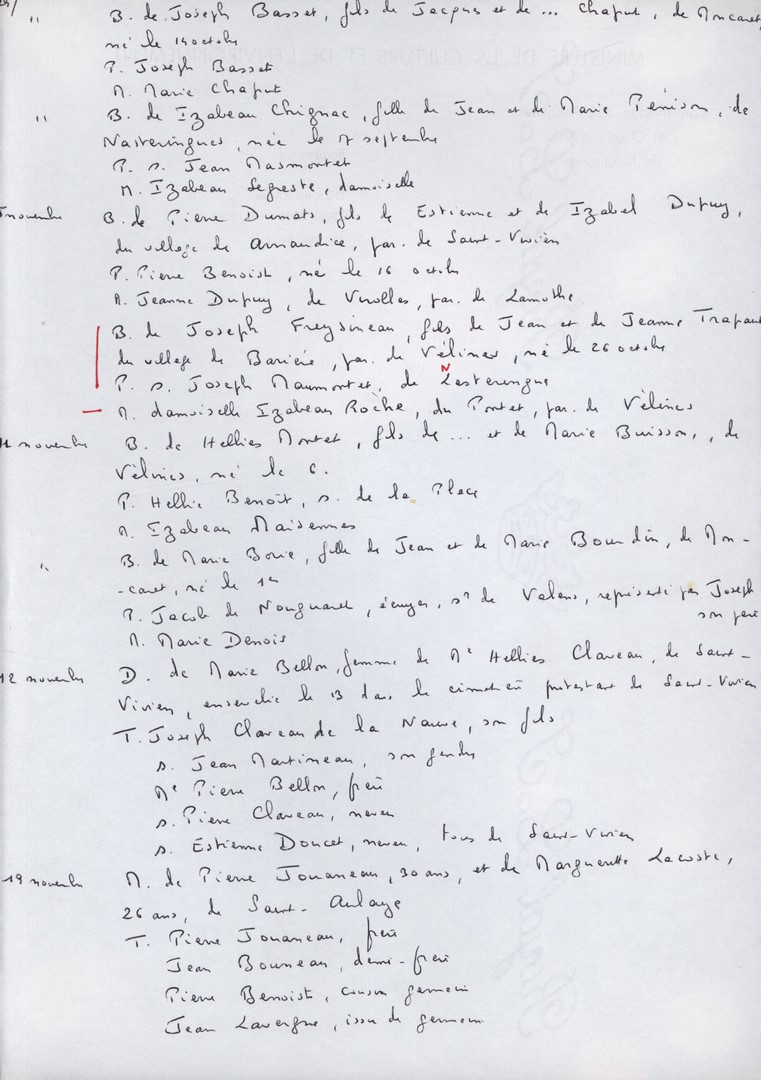 " B. de Joseph Basset, fils de Jacques et de ... Chaput, de Moncaret,
né le 14 octobre
P. Joseph Basset
M. Marie Chaput
" B. de Izabeau Chignac, fille de Jean et de Marie Pénison, de
Nasteringues, née le 17 septembre
P. s. Jean Masmontet
M. Izabeau Segreste, damoiselle
5 novembre B. de Pierre Dumats, fils de Estienne et de Izabel Dupuy,
du village de Arnaudice, par. de Saint-Vivien
P. Pierre Benoist, né le 16 octobre
M. Jeanne Dupuy, de Virolles, par. de Lamothe
B. de Joseph Freysineau, fils de Jean et de Jeanne Trapaut
du village de Bariere, par. de Vélines, né le 26 octobre
P. s. Joseph Maumontet, de Lesteringue
N
M. damoiselle Izabeau Roche, du Pontet, par. de Vélines
novembre B. de Hellies Montet, fils de ... et de Marie Buisson, de
Vélines, né le 6.
P. Hellie Benoit, s. de la Place
M. Izabeau
" B. de Marie Borie, fille de Jean et de Marie Bourdin, de Mon-
-caret, né le 1er
P. Jacob de Nougaret, écuyer, sr de Valens, représenté par Joseph
son père
M. Marie Denois
12 novembre D. de Marie Bellon, femme de Me Hellies Claveau, de Saint-
Vivien, ensevelie le 13 dans le cimetière protestant de Saint-Vivien
T. Joseph Claveau de la Nauve, son fils
s. Jean Martineau, son gendre
Me Pierre Bellon, frère
s. Pierre Claveau, neveu
s. Estienne Doucet, neveu, tous de Saint-Vivien
19 novembre M. de Pierre Jouaneau, 30 ans, et de Marguerite Lacoste,
26 ans, de Saint-Aulaye
T. Pierre Jouaneau, frère
Jean Bouneau, demi-frère
Pierre Benoist, cousin germain
Jean Lavergne, issu de germain